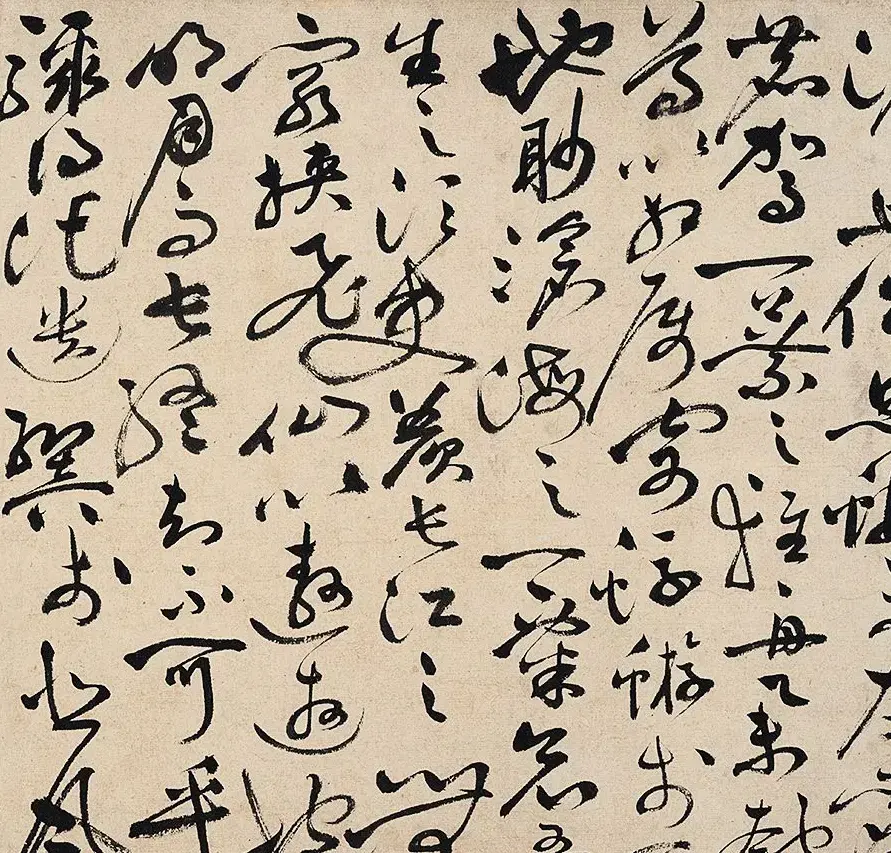 鹿駕一葉之扁舟舉匏
尊以相属寄蜉蝣於
地眇滄海之一粟哀吾
生之須臾羨長江之無
窮挾飛仙以遨遊抱
明月而長終知不可乎
驟得託遺響於悲風